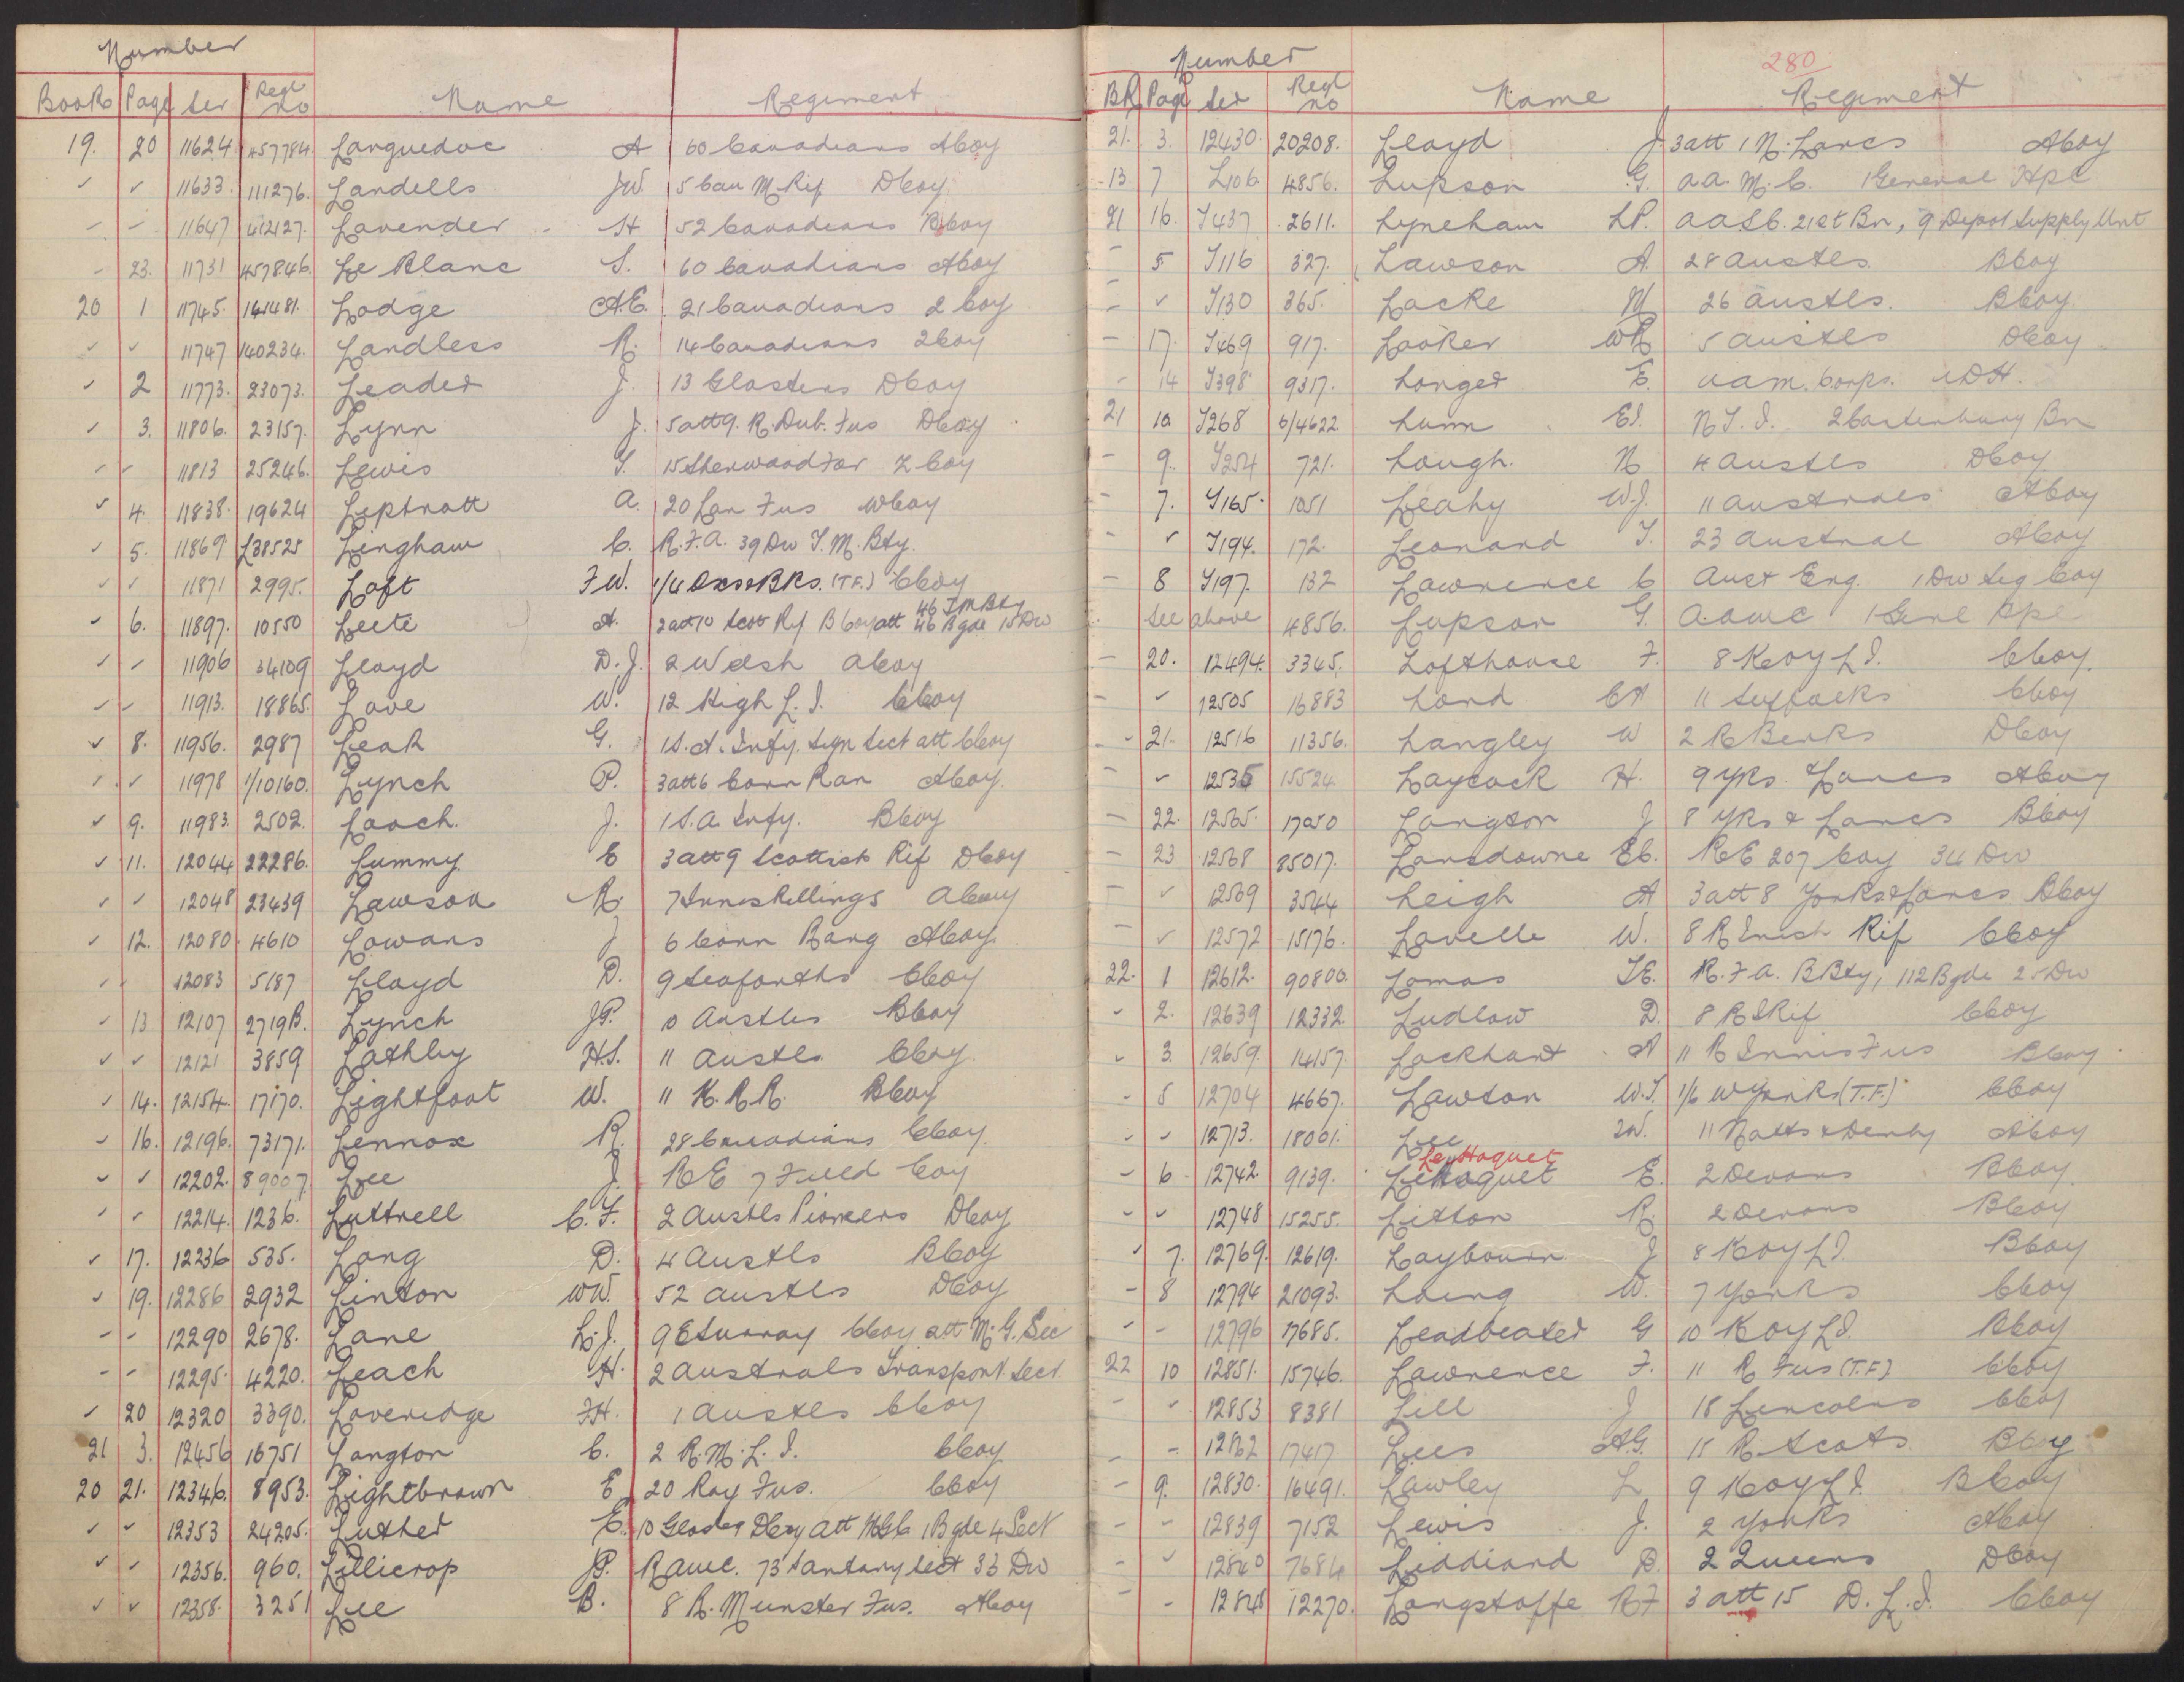 Number
Book Page Ser Regl no Name Regiment
19. 20 11624 457784. Languedoc A 60 Canadians A Coy
✓ ✓ 11633. 111276. Landells J.W. 5 Can M Rif D Coy
- - 11647 412127. Lavender H 52 Canadians B Coy
- 23. 11731 457846. Le Blanc S. 60 Canadians A Coy
20 1 11745. Lodge A.E. 21 Canadians 2 Coy
✓ ✓ 11747 140234. Landless R. 14 Canadians 2 Coy
✓ 2 11773. 23073. Leader J. 13 Glosters D Coy
✓ 3. 11806. 23157. Lynn J. 5 att 9. R. Dub. Fus D Coy
- - 11813 25246. Lewis S. 15 Sherwood For Z Coy
✓ 4. 11838. 19624 Leptrott A. 20 Lan Fus W Coy
✓ 5. 11869 L38525 Lingham C. R.F.A. 39 Div T.M. Bty.
✓ ✓ 11871 2995. Loft F W. 1/4 Ox & Bks. (T.F.) C Coy
✓ 6. 11897. 10550 Leete A. 2 att 10 Scott Rif B Coy att 46 T M Bty 46 Bgde 15 Div
✓ ✓ 11906 34109 Lloyd D.J. 2 Welsh A Coy
- - 11913. 18865. Love W. 12 High L.I. C Coy
✓ 8. 11956. 2987 Leak G. 1 S.A. Infy. Sign Sect att C Coy
✓ ✓ 11978 1/10160. Lynch P. 3 att 6 Conn Ran A Coy.
✓ 9. 11983. 2502. Looch. J. 1 S.A. Infy. B Coy
✓ 11. 12044 22286. Lummy. E 3 att 9 Scottish Rif D Coy
✓ ✓ 12048 23439 Lawson R. 7 Inniskillings A Coy
✓ 12. 12080 4610 Lowans J 6 Conn Rang A Coy.
✓ ✓ 12083 5187 Lloyd D. 9 Seaforths C Coy
✓ 13 12107 2719B. Lynch J.P. 10 Austls B Coy
✓ ✓ 12121 3859 Lathby H.S. 11 Austls C Coy.
✓ 14. 12154. 17170. Lightfoot W. 11 K.R.R. B Coy
✓ 16. 12196. 73171. Lennox R. 28 Canadians C Coy.
✓ ✓ 12202. 89007. Lee J. R E 7 Field Coy
✓ ✓ 12214. 1236. Luttrell C.F. 2 Austls Pioneers D Coy
✓ 17. 12236 535. Long D. 4 Austls B Coy
✓ 19. 12286 2932 Linton W W. 52 Austls D Coy
- - 12290 2678. Lane L.J. 9 E Surray C Coy att M.G. Sec
- - 12295. 4220. Leach H. 2 Australs Transport Sect
✓ 20 12320 3390. Loveridge F H. 1 Austls C Coy
21 3. 12456 16751 Langton C. 2 R.M.L.I. C Coy
20 21. 12346. 8953. Lightbrown E 20 Roy Fus. C Coy
✓ ✓ 12353 24205. Luther E. 10 Glosters D Coy att M G C 1 Bgde 4 Sect
✓ ✓ 12356. 960. Lillicrop J.P. R A M C. 73 Sanitary Sect 33 Div
✓ ✓ 12358. 3251 Lee B. 8 R. Munster Fus. A Coy
280
Number
BK Page Ser Regl no Name Regiment
21. 3. 12430. 20208. Lloyd J. 3 att 1 N. Lancs A Coy
13 7 L106 4856. Lupson G. A A. M. C. 1 General Hpl
21 16. I437 2611. Lyneham L P. A A S C. 21st Bn, 9 Depot Supply Unit
- 5 I116 327. Lawson A. 28 Austls. B Coy
- ✓ I130 365. Locke W 26 Austls. B Coy
- 17. I469 917. Looker W R 5 Austls D Coy
- 14 I398 9317. Longer E. A A M. Corps. 1 D H.
21 10 I268 6/4622 Lunn E S. N Z. I. 2 Canterbury Bn
- 9. I254 721. Lough. N 4 Austls D Coy
- 7. I165. 1051 Leahy W.J. 11 Australs A Coy
- ✓ I194. 172. Leonard T. 23 Austral A Coy
- 8 I197. 132 Lawrence C Aust Eng. 1 Div Sig Coy
See above 4856. Lupson G. A A M C 1 Genl Hpl
- 20. 12494. 3345. Lofthouse F. 8 K O Y L I. C Coy.
- ✓ 12505 16883 Lond C A 11 Suffolks C Coy
- 21. 12516 11356. Langley W 2 R Berks D Coy
- ✓ 12535 15524 Laycock H. 9 Yks & Lancs A Coy
- 22. 12565. 17050 Langton J 8 Yks & Lancs B Coy
- 23 12568 85017. Lansdowne E C. R E 207 Coy 34 Div
- ✓ 12569 3544 Leigh A 3 att 8 Yorks & Lancs B Coy
- ✓ 12572 15176. Lavelle W. 8 R Irish Rif C Coy
22. 1 12612. 90800. Lomas T E. R.F.A. B Bty, 112 Bgde 25 Div
✓ 2. 12639 12332. Ludlow D. 8 R I Rif C Coy
✓ 3. 12659. 14157. Lockhart A 11 R Innis Fus B Coy.
- 5 12704 4667. Lawton W.S. 1/6 W Yorks (T.F.) C Coy
✓ ✓ 12713. 18001. Lee W. 11 Notts & Derby A Coy
Le Hoquet
- 6 12742 9139. Le Hoquet E. 2 Devons B Coy.
✓ ✓ 12748 15255. Litton R. 2 Devons B Coy
✓ 7. 12769. 12619. Laybourn J 8 K O Y L I. B Coy
- 8 12794 21093. Laing W. 7 Yorks C Coy
✓ - 12796 17685. Leadbeater G 10 K O Y L I. B Coy
22 10 12851. 15746. Lawrence F. 11 R Fus (T.F.) C Coy
- ✓ 12853 8381 Lill J 18 Lincolns C Coy
- - 12862 17417 Lees A.G. 15 R Scots B Coy
- 9. 12830. 16491. Lawley L 9 K O Y L I. B Coy
- - 12839 7152 Lewis J. 2 Yorks A Coy
- ✓ 12840 7684 Liddiard D. 2 Queens D Coy
- - 12848 12270. Longstaffe R F 3 att 15 D.L.I. C Coy